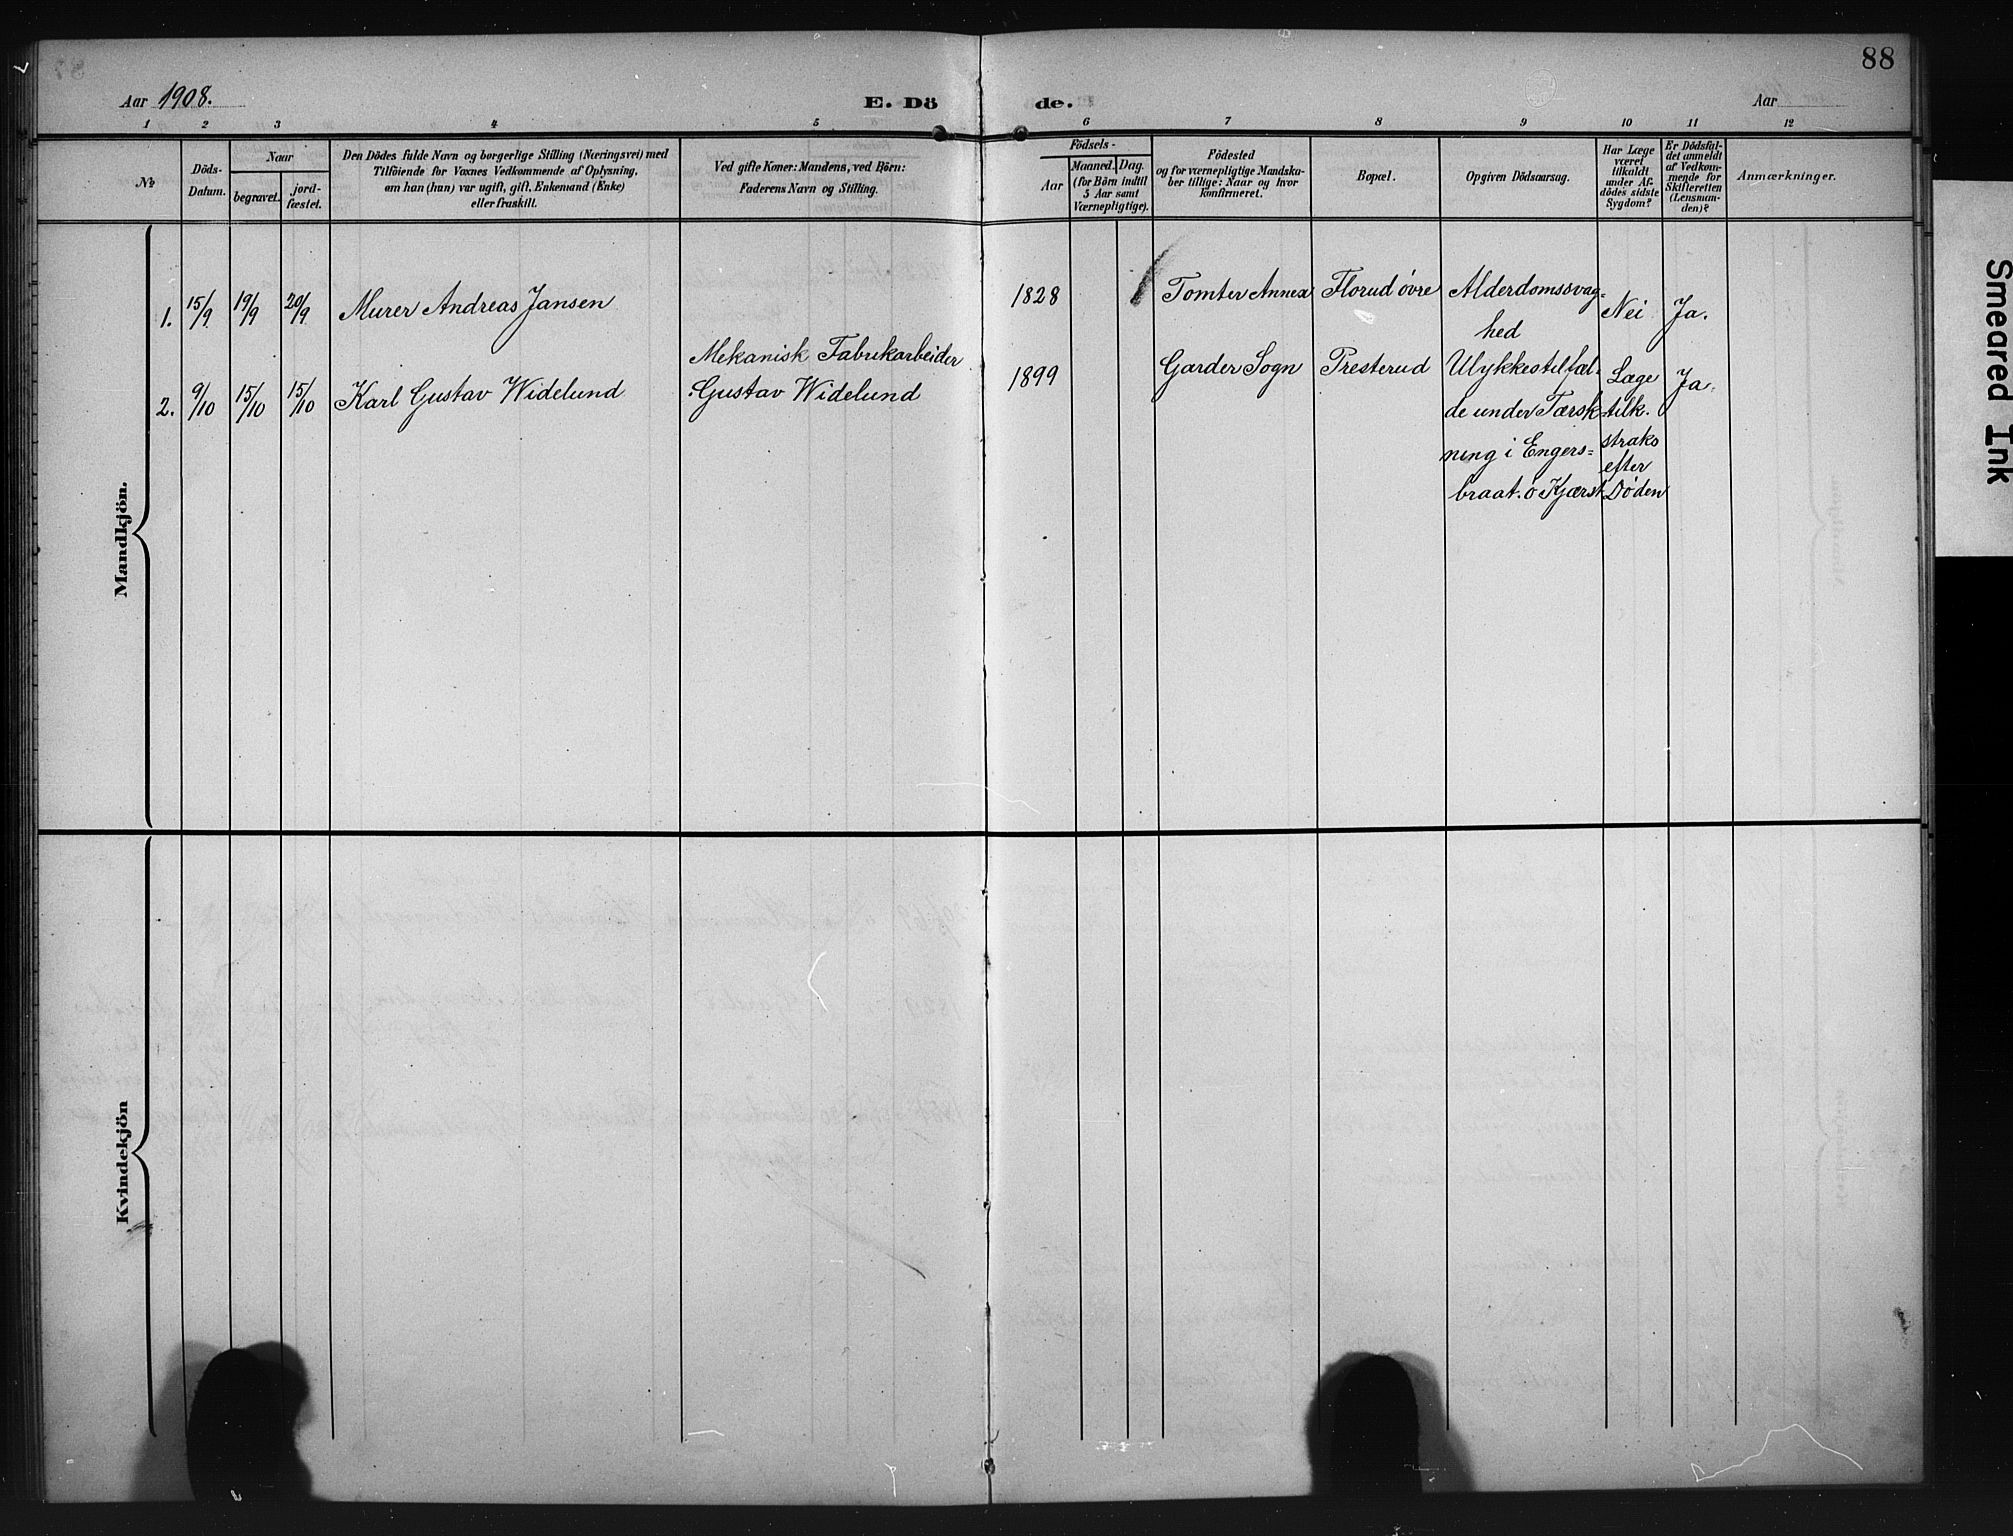 88
Aar 1908.
E. Dö
de.
Aar
1 2 3 4 5 6 7 8 9 10 11 12
№
Döds-
Datum.
Naar
begravet.
jord-
fæstet.
Den Dödes fulde Navn og borgerlige Stilling (Næringsvei) med
Tilföiende for Voxnes Vedkommende af Oplysning,
om han (hun) var ugift, gift, Enkemand (Enke)
eller fraskilt.
Ved gifte Koner: Mandens, ved Börn:
Faderens Navn og Stilling.
Födsels-
Aar
Maaned. Dag.
(for Börn indtil
5 Aar samt
Værnepligtige).
Födested
og for værnepligtige Mandska-
ber tillige: Naar og hvor
konfirmeret.
Bopæl.
Opgiven Dödsaarsag.
Har Læge
været
tilkaldt
under Af-
dödes sidste
Sygdom?
Er Dödsfal-
det anmeldt
af Vedkom-
mende for
Skifteretten
(Lensman-
den)?
Anmærkninger.
Mandkjön.
1. 15/9 19/9 20/9 Murer Andreas Jansen
1828 Tomter Annex Florud øvre Alderdomssvag=
hed
Nei Ja.
2. 9/10 15/10 15/10 Karl Gustav Widelund
Mekanisk Fabrikarbeider
Gustav Widelund
1899 Garder Sogn Presterud Ulykkestilfæl-
de under Tærsk-
ning i Engers=
braat. ø Kjærst
Læge
tilk.
straks
efter
Døden
Ja.
Kvindekjön
Smeared Ink